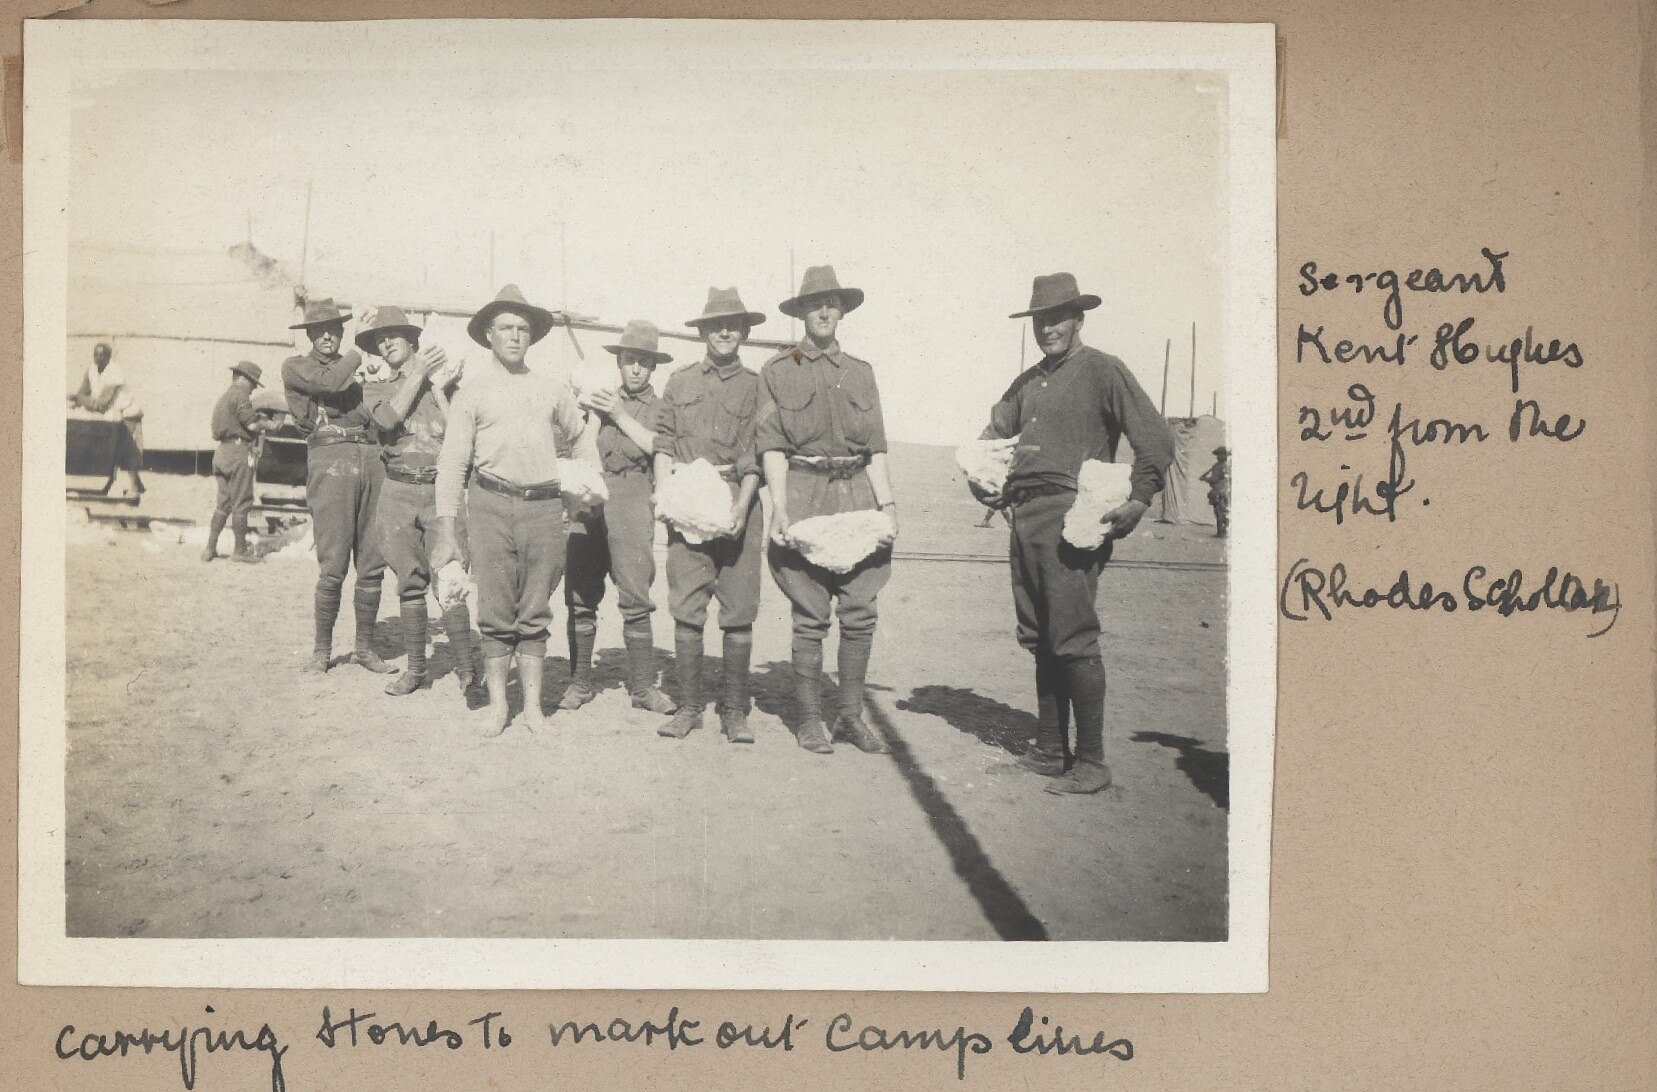 Sergeant
Kent Hughes
2nd from the
right.
(Rhodes Schollar)
Carrying stones to mark out Camp lines